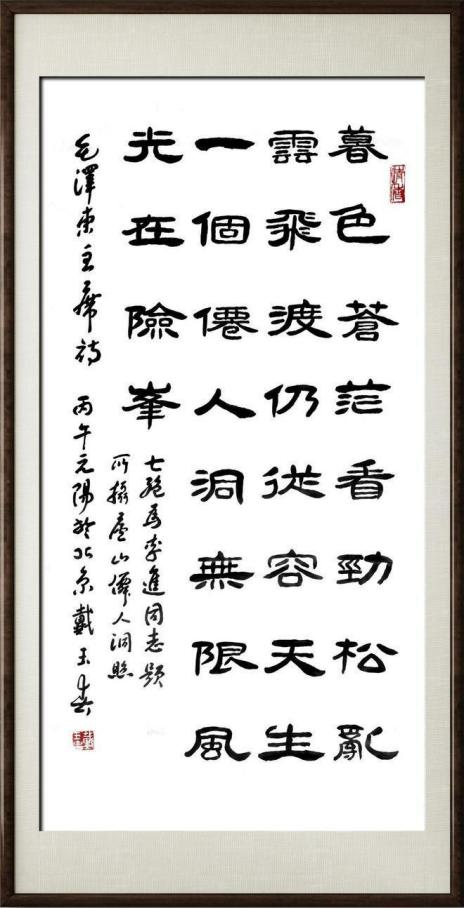 暮色蒼茫看勁松亂
雲飛渡仍從容天生
一個僊人洞無限風
光在險峯
七絶爲李進同志題
所攝廬山僊人洞照
毛澤東主席詩 丙午元陽於北京戴玉